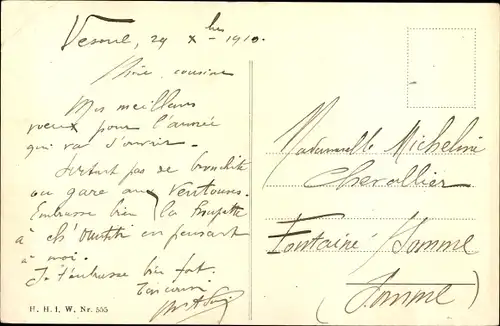 Vesoul, 29 Xbre 1910.
Chère cousine
Mes meilleurs
voeux pour l'année
qui va s'ouvrir.
Surtout pas de bronchite
ou gare aux Ventouses.
Embrasse bien la
à en pensant
à moi.
Je t'embrasse bien fort.
Ton cousin
Mademoiselle Micheline
Chevallier
Fontaine / Somme
(Somme)
H. H. I. W. Nr. 555